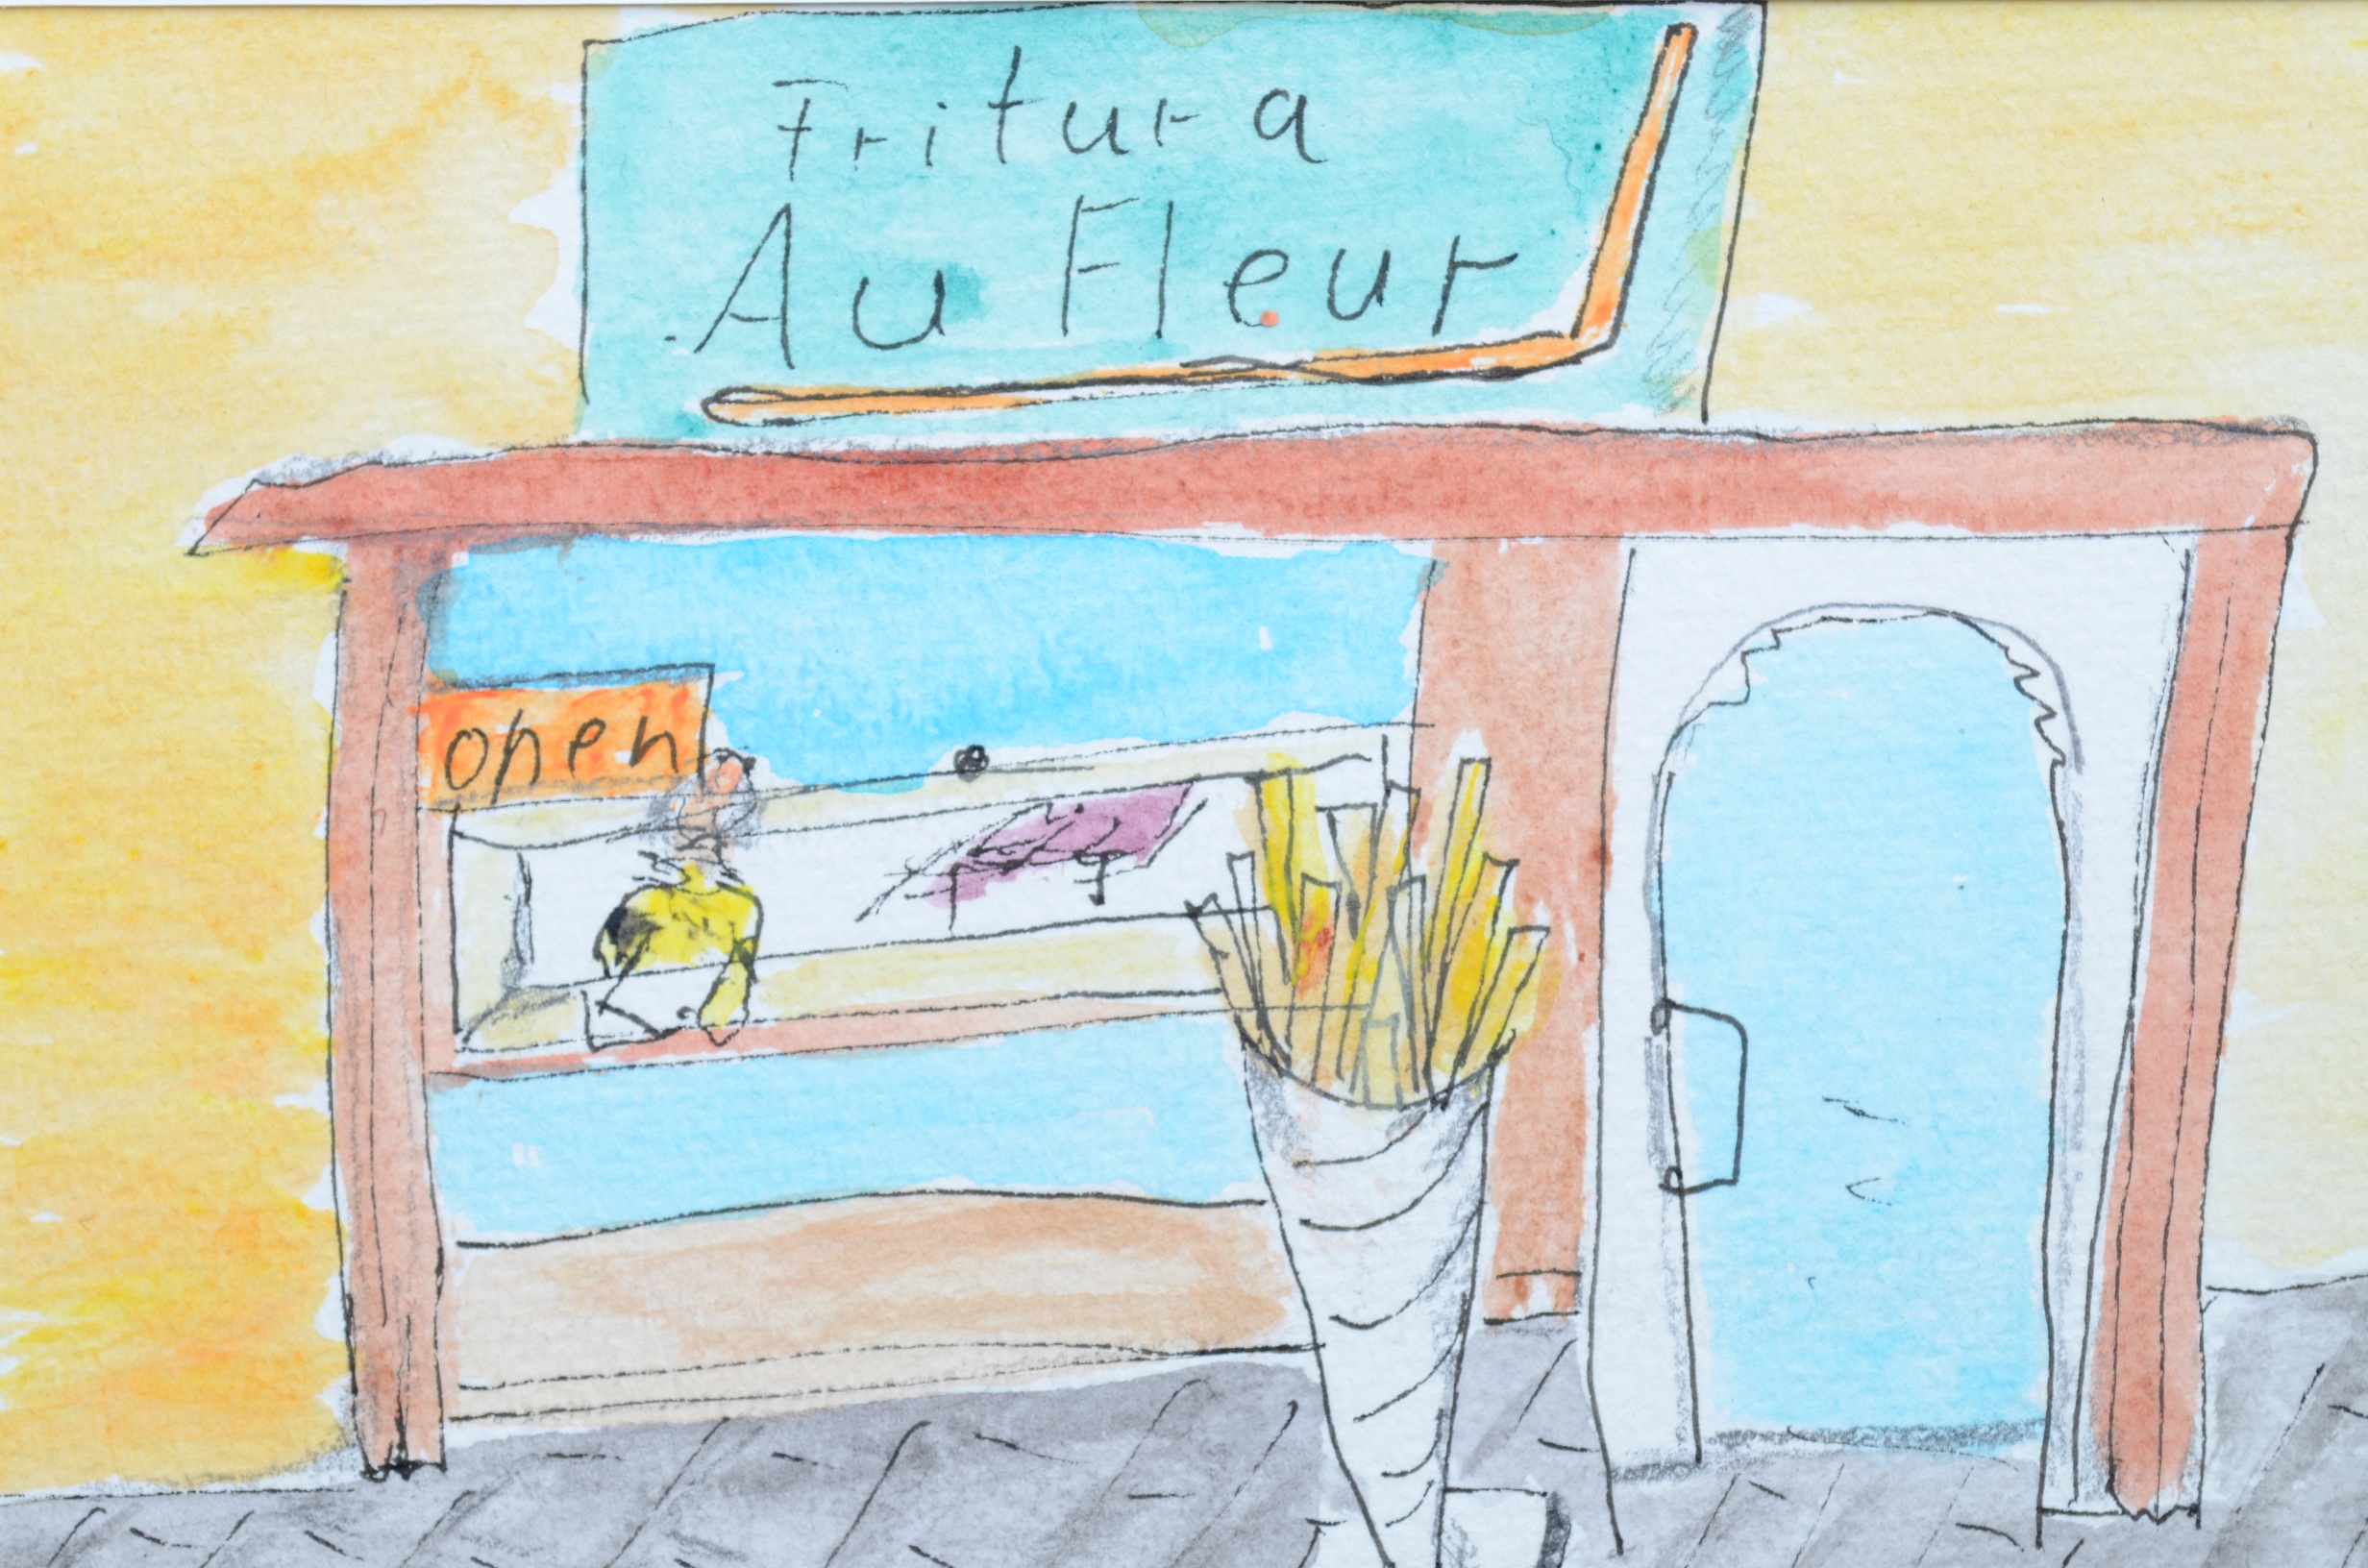 Fritura
Au Fleur
open